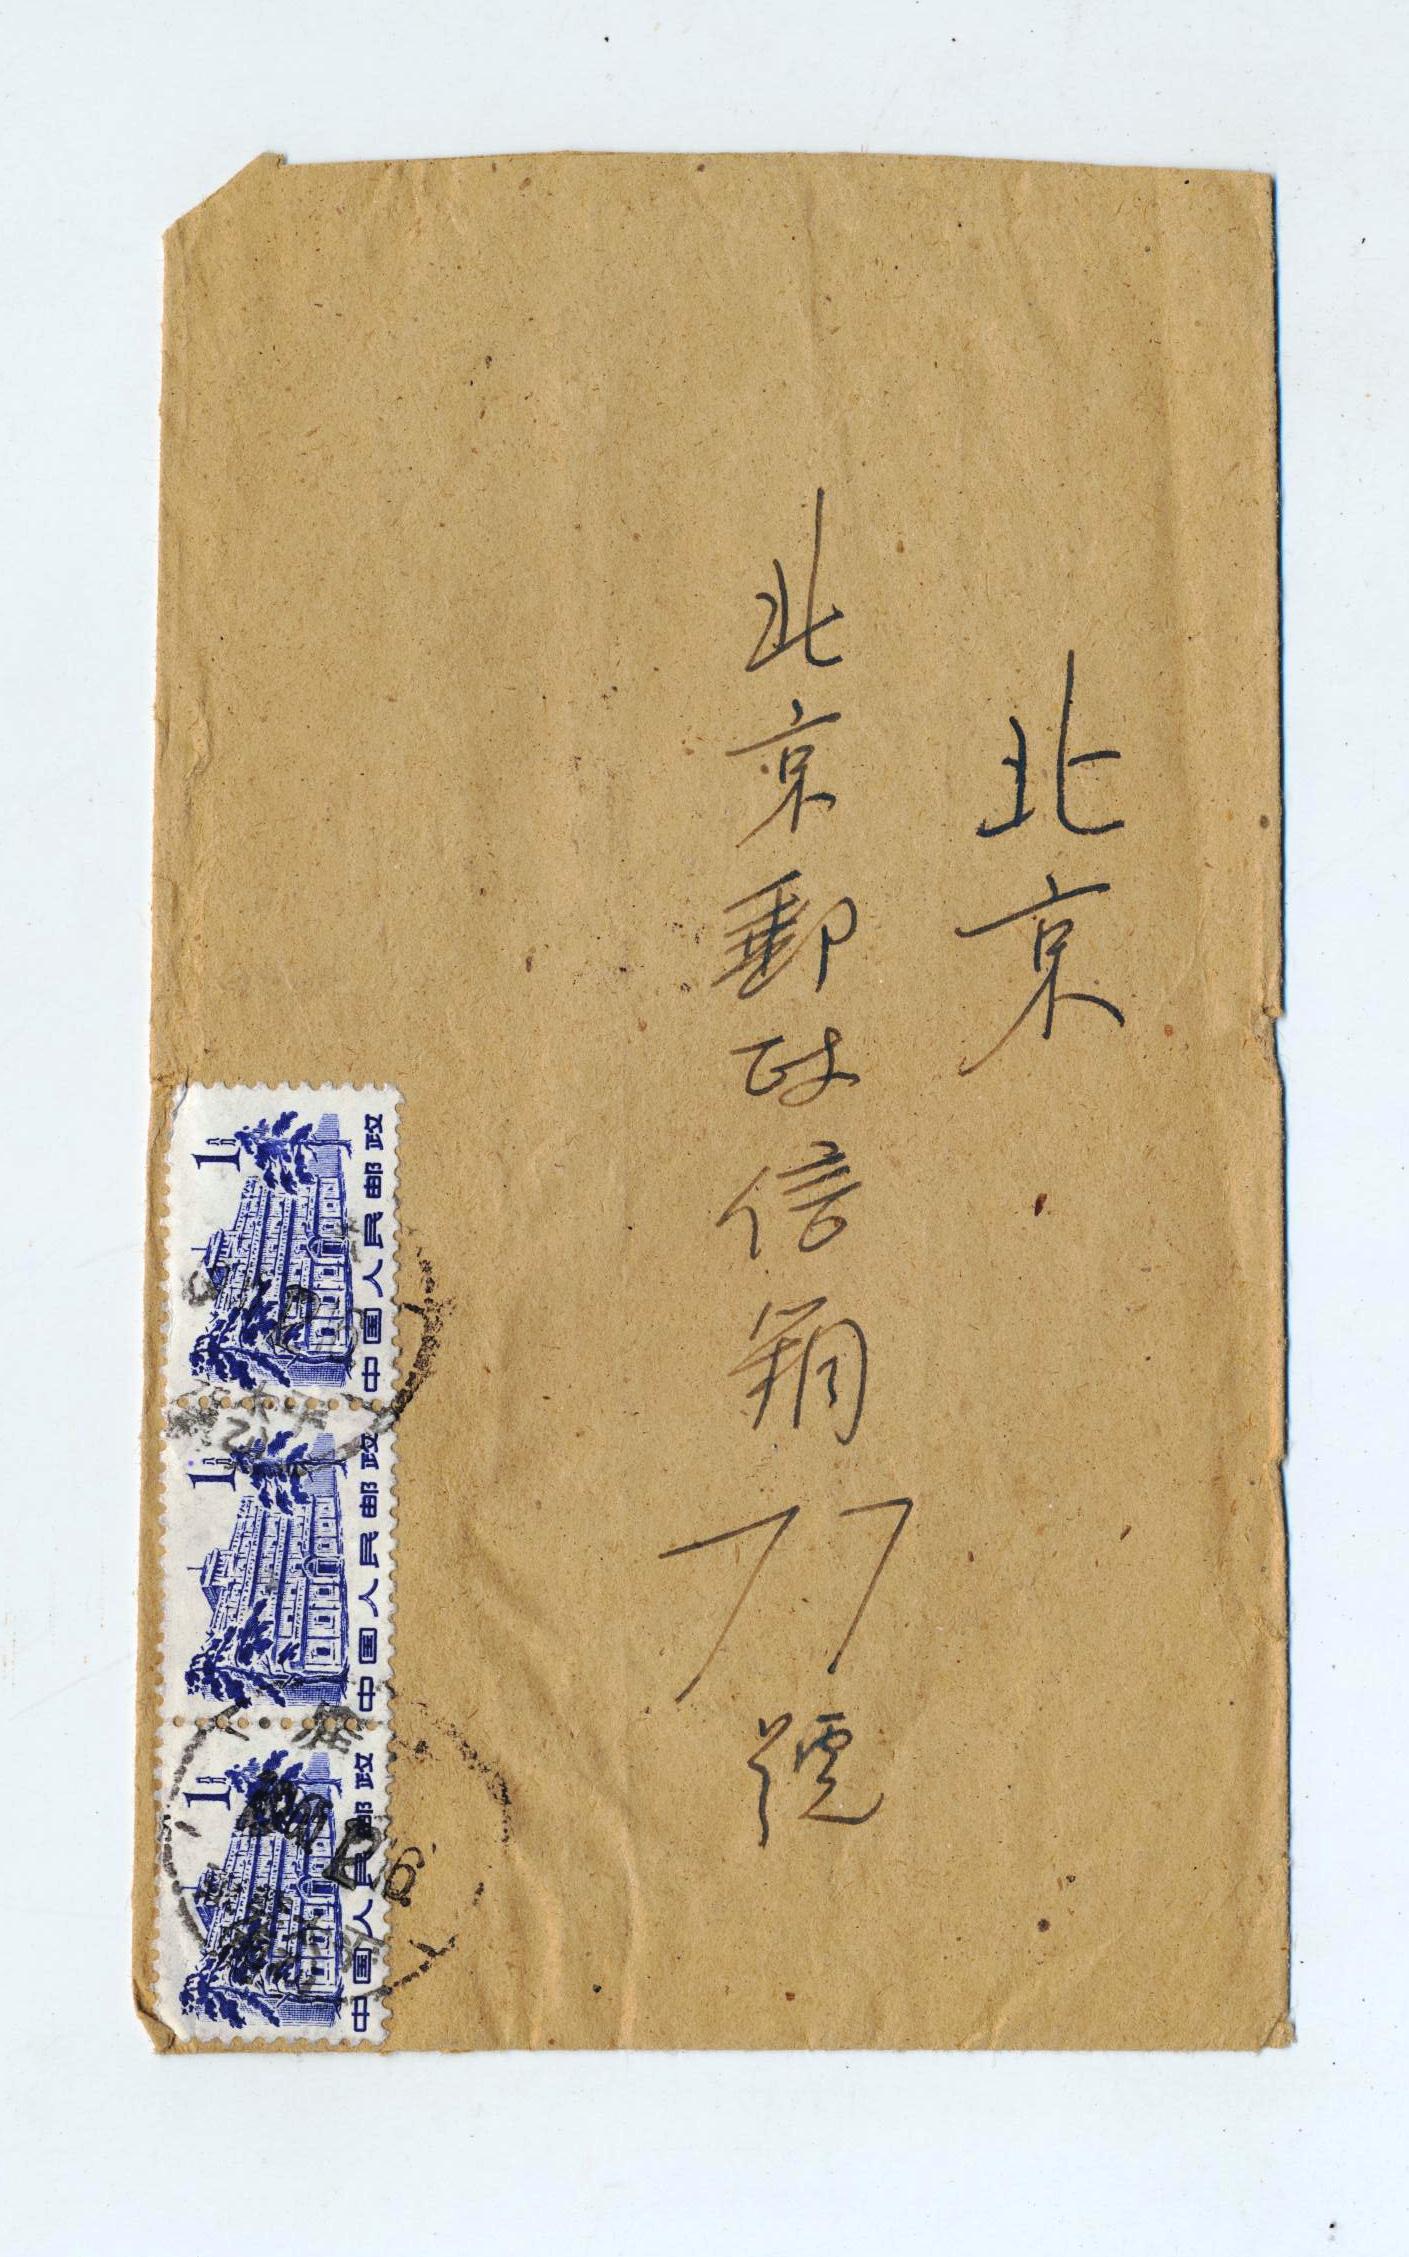 北京
北京郵政信箱77號
1分
中国人民邮政
1分
中国人民邮政
1分
中国人民邮政